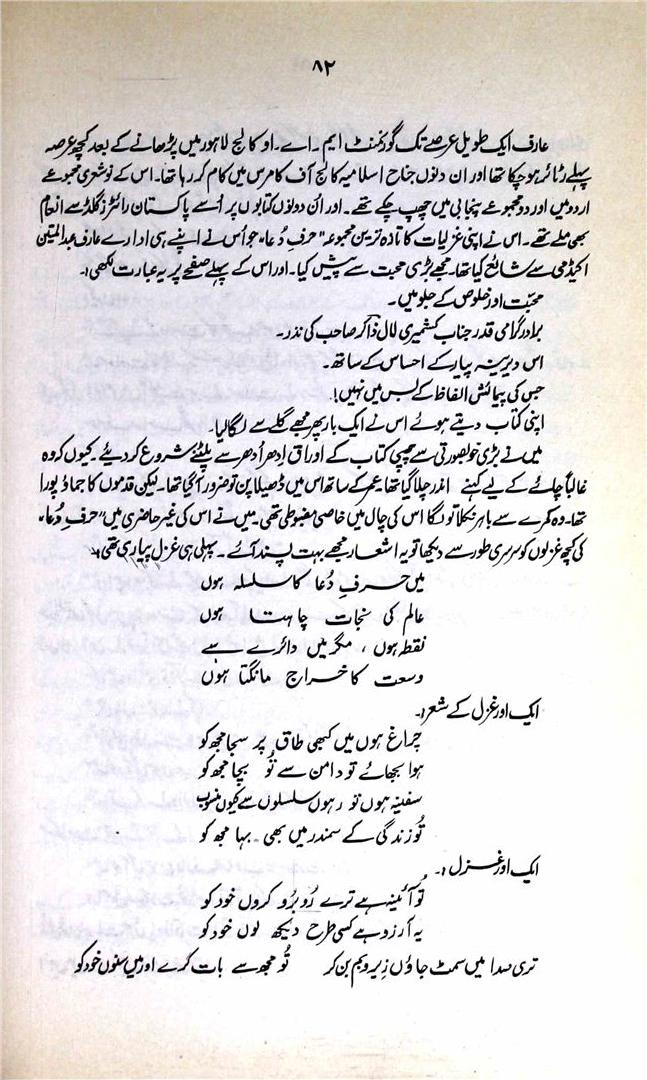 ۸۲
عارف ایک طویل عرصے تک گورنمنٹ ایم۔اے۔او کالج لاہور میں پڑھانے کے بعد کچھ عرصہ
پہلے رٹائر ہو چکا تھا اور ان دنوں جناح اسلامیہ کالج آف کامرس میں کام کر رہا تھا۔ اس کے نو شعری مجموعے
اردو میں اور دو مجموعے پنجابی میں چھپ چکے تھے۔ اور ان دونوں کتابوں پر اُسے پاکستان رائٹرز گلڈ سے انعام
بھی ملے تھے۔ اس نے اپنی غزلیات کا تازہ ترین مجموعہ "حرفِ دُعا" جو اُس نے اپنے ہی ادارے عارف عبدالمتین
اکیڈمی سے شائع کیا تھا۔ مجھے بڑی محبت سے پیش کیا۔ اور اس کے پہلے صفحے پر یہ عبارت لکھی:۔
محبّت اور خلوص کے جلو میں۔
برادر گرامی قدر جناب کشمیری لال ذاکر صاحب کی نذر۔
اس دیرینہ پیار کے احساس کے ساتھ۔
جس کی پیمائش الفاظ کے بس میں نہیں!
اپنی کتاب دیتے ہوئے اس نے ایک بار پھر مجھے گلے سے لگا لیا۔
میں نے بڑی خوبصورتی سے چھپی کتاب کے اوراق اِدھر اُدھر سے پلٹنے شروع کر دیئے۔ کیوں کہ وہ
غالباً چائے کے لیے کہنے اندر چلا گیا تھا۔ عمر کے ساتھ اس میں ڈھیلا پن تو ضرور آ گیا تھا۔ لیکن قدموں کا جماؤ پورا
تھا۔ وہ کمرے سے باہر نکلا تو لگا اس کی چال میں خاصی مضبوطی تھی۔ میں نے اس کی غیر حاضری میں "حرفِ دُعا"
کی کچھ غزلوں کو سرسری طور سے دیکھا تو یہ اشعار مجھے بہت پسند آئے۔ پہلی ہی غزل پیاری تھی۔
میں حرفِ دُعا کا سلسلہ ہوں
عالم کی نجات چاہتا ہوں
نقطہ ہوں ، مگر میں دائرے سے
وسعت کا خراج مانگتا ہوں
ایک اور غزل کے شعر:۔
چراغ ہوں میں کبھی طاق پر سجا مجھ کو
ہوا بجھائے تو دامن سے تُو بچا مجھ کو
سفینہ ہوں تو رہوں ساحلوں سے کیوں منسوب
تُو زندگی کے سمندر میں بھی۔ بہا مجھ کو
ایک اور غزل:۔
تُو آئینہ ہے ترے رُو برُو کروں خود کو
یہ آرزو ہے کسی طرح دیکھ لوں خود کو
تری صدا میں سمٹ جاؤں زیر و بم بن کر تُو مجھ سے بات کرے اور میں سنوں خود کو